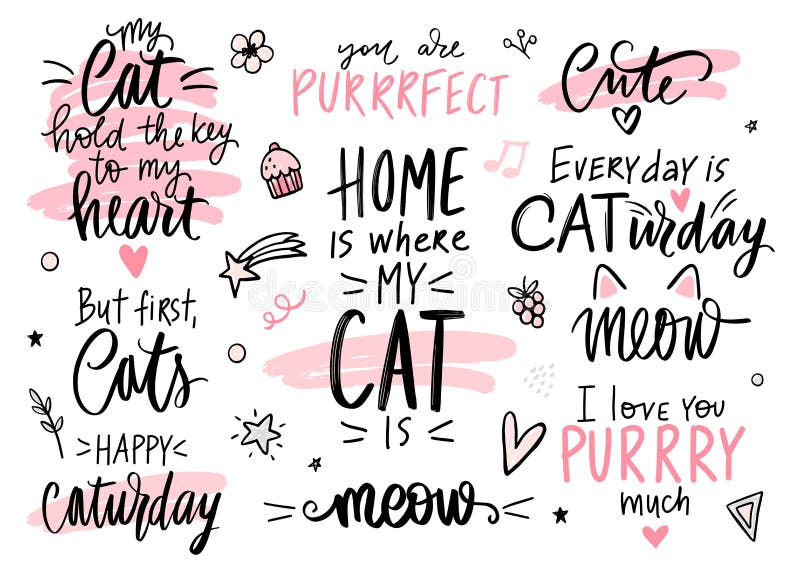 my
Cat
hold the key
to my
heart
But first,
Cats
HAPPY
Caturday
you are
PURRRFECT
HOME
IS WHERE
MY
CAT
IS
meow
Cute
EVERY day is
CATurday
meow
I love you
PURRRY
much
dreamstime